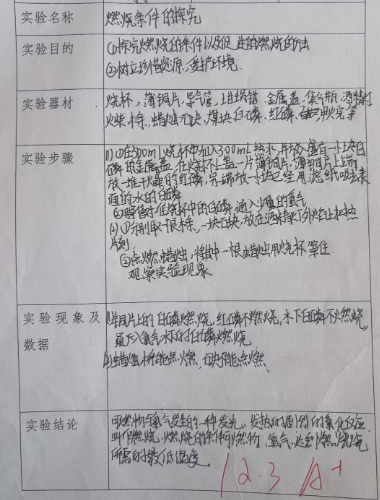 实验名称 燃烧条件的探究
实验目的 ①探究燃烧的条件以及促进的燃烧的方法
②树立珍惜资源,爱护环境.
实验器材 烧杯,薄铜片,导气管,坩埚钳,金属盖,集气瓶,酒精灯
火柴,木条,蜡烛,石块,煤块,白磷,红磷,
实验步骤 在500mL烧杯中加入300mL热水,
磷的金属盖,在烧杯上盖一片薄铜片,薄铜片上一端
放一堆干燥的红磷,另一端放一小块已经用滤纸吸去表
面的水的白磷
烧杯中的白磷,通入少量的氧气
片刻.
点燃蜡烛,将其中一根蜡烛用烧杯罩住
观察实验现象
实验现象及 铜片上的白磷燃烧,红磷不燃烧,水下白磷不燃烧
数据 通入氧气水下的白磷燃烧.
实验结论 可燃物与氧气发生的一种发光、发热的剧烈的氧化反应
叫做燃烧,燃烧的条件可燃物、氧气、达到燃烧
所需的最低温度.
12.3 A+